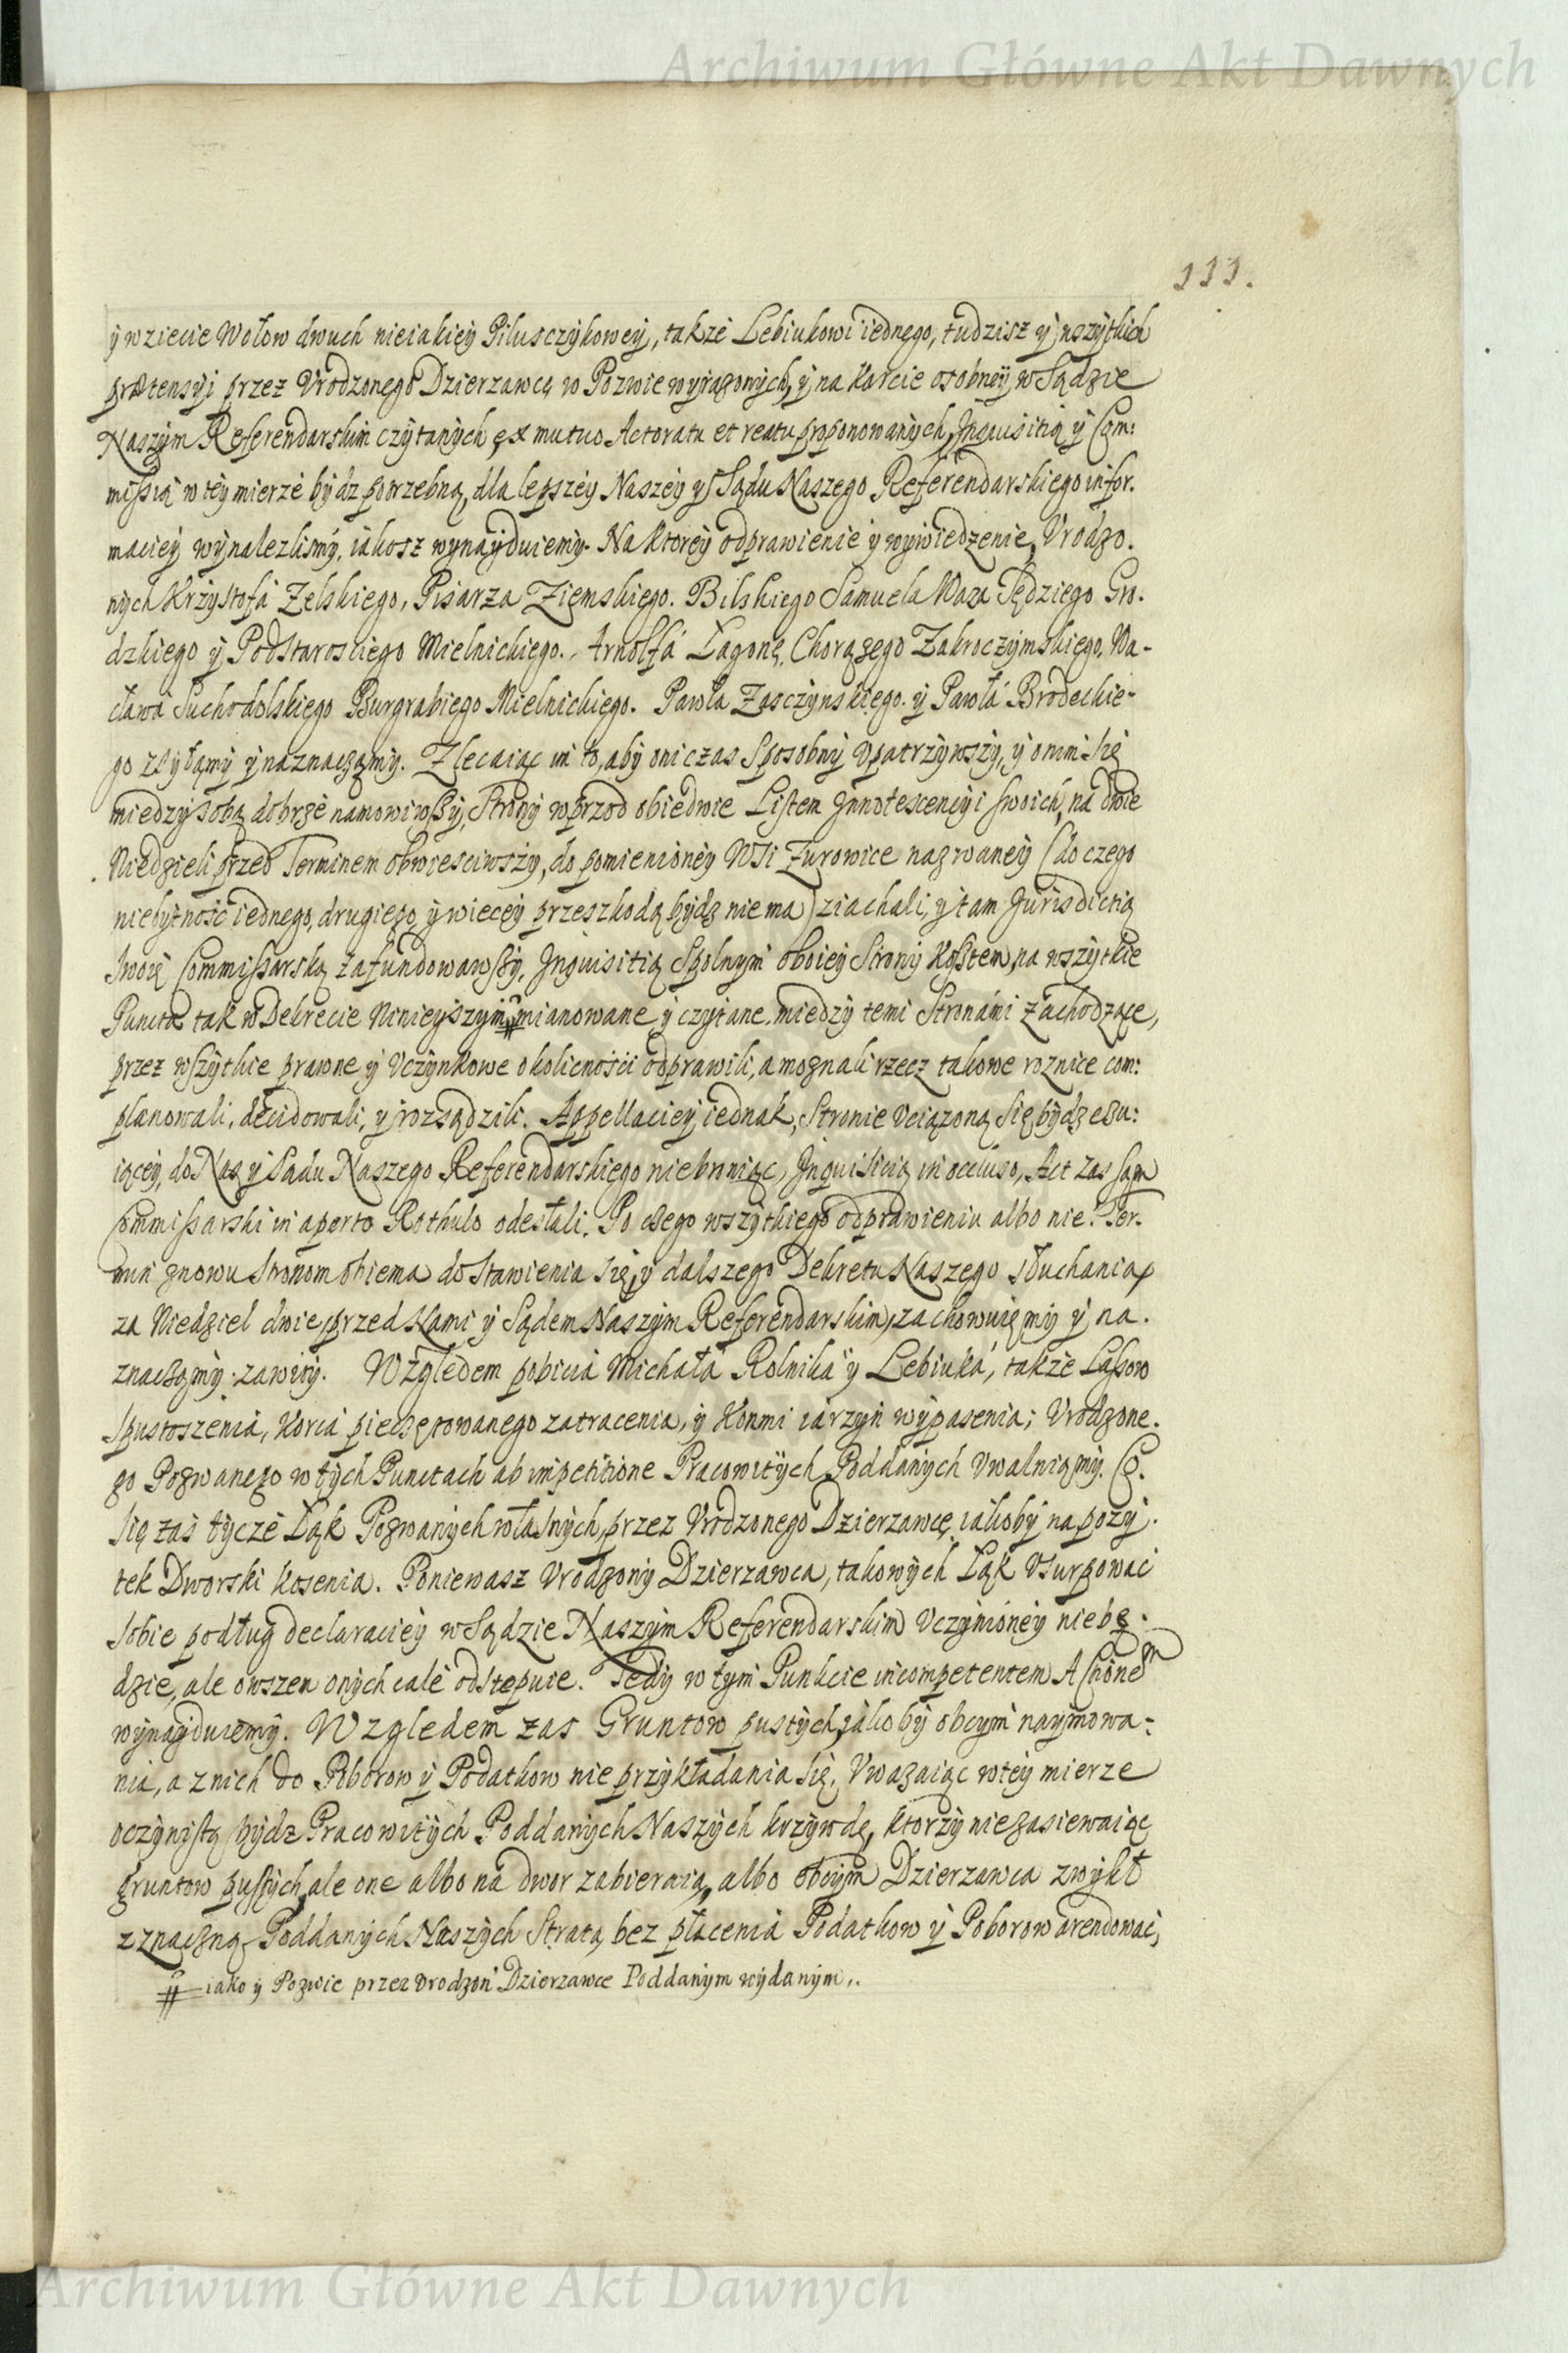 Archiwum Główne Akt Dawnych
111.
ÿ wziecie Wołow dwuch nieiakieÿ Pilusczÿkoweÿ, także Lebiukowi iednego, tudzisz ÿ wszÿtkich
prætensÿi przez Vrodzonego Dzierzawcę w Pozwie wÿrazonÿch, ÿ na karcie osobneÿ, w Sądzie
Naszÿm Referendarskim czÿtanÿch ex mutuo Actoratu et reatu proponowanÿch, Inquisitią ÿ Com:
missią w teÿ mierze bÿdz potrzebną, dla lepszeÿ Naszeÿ ÿ Sądu Naszego Referendarskiego infor.
macieÿ wÿnalezlismÿ, iakosz wÿnaÿduiemÿ. Na ktoreÿ odprawienie ÿ wÿwiedzenie, Vrodzo.
nÿch Krzÿstofa Zelskiego, Pisarza Ziemskiego. Bilskiego Samuela Waza Sędziego Gro.
dzkiego ÿ Podstarosciego Mielnickiego. Arnolfa Łagonę, Chorązego Zakroczÿmskiego, Wa-
cława Suchodolskiego Burgrabiego Mielnickiego. Pawła Zasczÿnskiego. ÿ Pawła Brodeckie-
go zsÿłamÿ ÿ naznaczamÿ. Zlecaiąc im to, abÿ oni czas sposobnÿ vpatrzÿwszÿ, ÿ o nim się
miedzÿ sobą dobrze namowiwszÿ, Stronÿ wprzod obiedwie Listem Innotescencÿi swoich, na dwie
Niedzieli przed Terminem obwiesciwszÿ, do pomienioneÿ Wsi Zurowice nazwaneÿ (do czego
niebÿtność iednego, drugiego, ÿ wieceÿ przeszkodą bÿdz nie ma) ziachali, ÿ tam Jurisdictią
swoię Commissarską zafundowawszÿ, Inquisitią Spolnÿm oboieÿ Stronÿ Kosztem, na wszÿtkie
Puncta tak w Dekrecie Ninieÿszÿm # mianowane ÿ czÿtane, miedzÿ temi Stronámi zachodzące,
przez wszÿtkie prawne ÿ vczÿnkowe okolicności odprawili, a moznali rzecz takowe roznice com:
planowali, decidowali, ÿ rozsądzili. Appellacieÿ iednak, Stronie vciązoną się bÿdz czu:
iąceÿ, do Nas ÿ Sądu Naszego Referendarskiego niebroniąc, Inquisicią in occluso, Act zas sam
Commissarski in aperto Rothulo odesłali. Po czego wszÿtkiego odprawieniu albo nie. Ter.
min znowu stronom obiema do stawienia się, ÿ dalszego Dekretu Naszego słuchania,
za Niedziel dwie, przed Nami ÿ Sądem Naszÿm Referendarskim, zachowuięmÿ ÿ na.
znaczamÿ zawitÿ. Względem pobicia Michała Rolnika ÿ Lebiuka, także Lassow
spustoszenia, Korca pieczętowanego zatracenia, ÿ Konmi iarzÿn wÿpasenia; Vrodzone.
go Pozwanego w tÿch Punctach ab impetitione Pracowitÿch Poddanÿch Vwalniamÿ. Co.
się zas tÿcze Łąk Pozwanÿch własnÿch, przez Vrodzonego Dzierzawcę iakobÿ na pozÿ.
tek Dworski kosenia. Poniewasz Vrodzonÿ Dzierzawca, takowÿch Łąk Vsurpowac
sobie podług declaracieÿ w Sądzie Naszÿm Referendarskim Vczÿnioneÿ nie bę.
dzie, ale owszem onÿch cale odstępuie. Tedÿ w tÿm Punkcie incompetentem Actionem
wÿnaÿduiemÿ. Względem zas Gruntow pustÿch, iakobÿ obcÿm naÿmowa:
nia, a z nich do Poborow ÿ Podatkow nie przÿkładania się, Vwazaiąc w teÿ mierze
oczÿwistą bÿdz Pracowitÿch Poddanÿch Naszÿch krzÿwdę, ktorzÿ nie zasiewaiąc
gruntow pustÿch, ale one albo na dwor zabieraią, albo obcÿm Dzierzawca zwÿkł
z znaczną Poddanÿch Naszÿch Stratą, bez płacenia Podatkow ÿ Poborow arendować,
# iako ÿ Pozwie przez Vrodzon Dzierzawce Poddanÿm wÿdanÿm.
Archiwum Główne Akt Dawnych